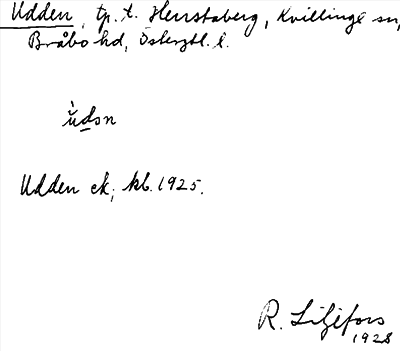 Udden, tp. t. Herrstaberg, Kvillinge sn,
Bråbo hd, Östergtl. l.
ùdən
Udden ek, kb. 1925.
R. Liljefors
1928